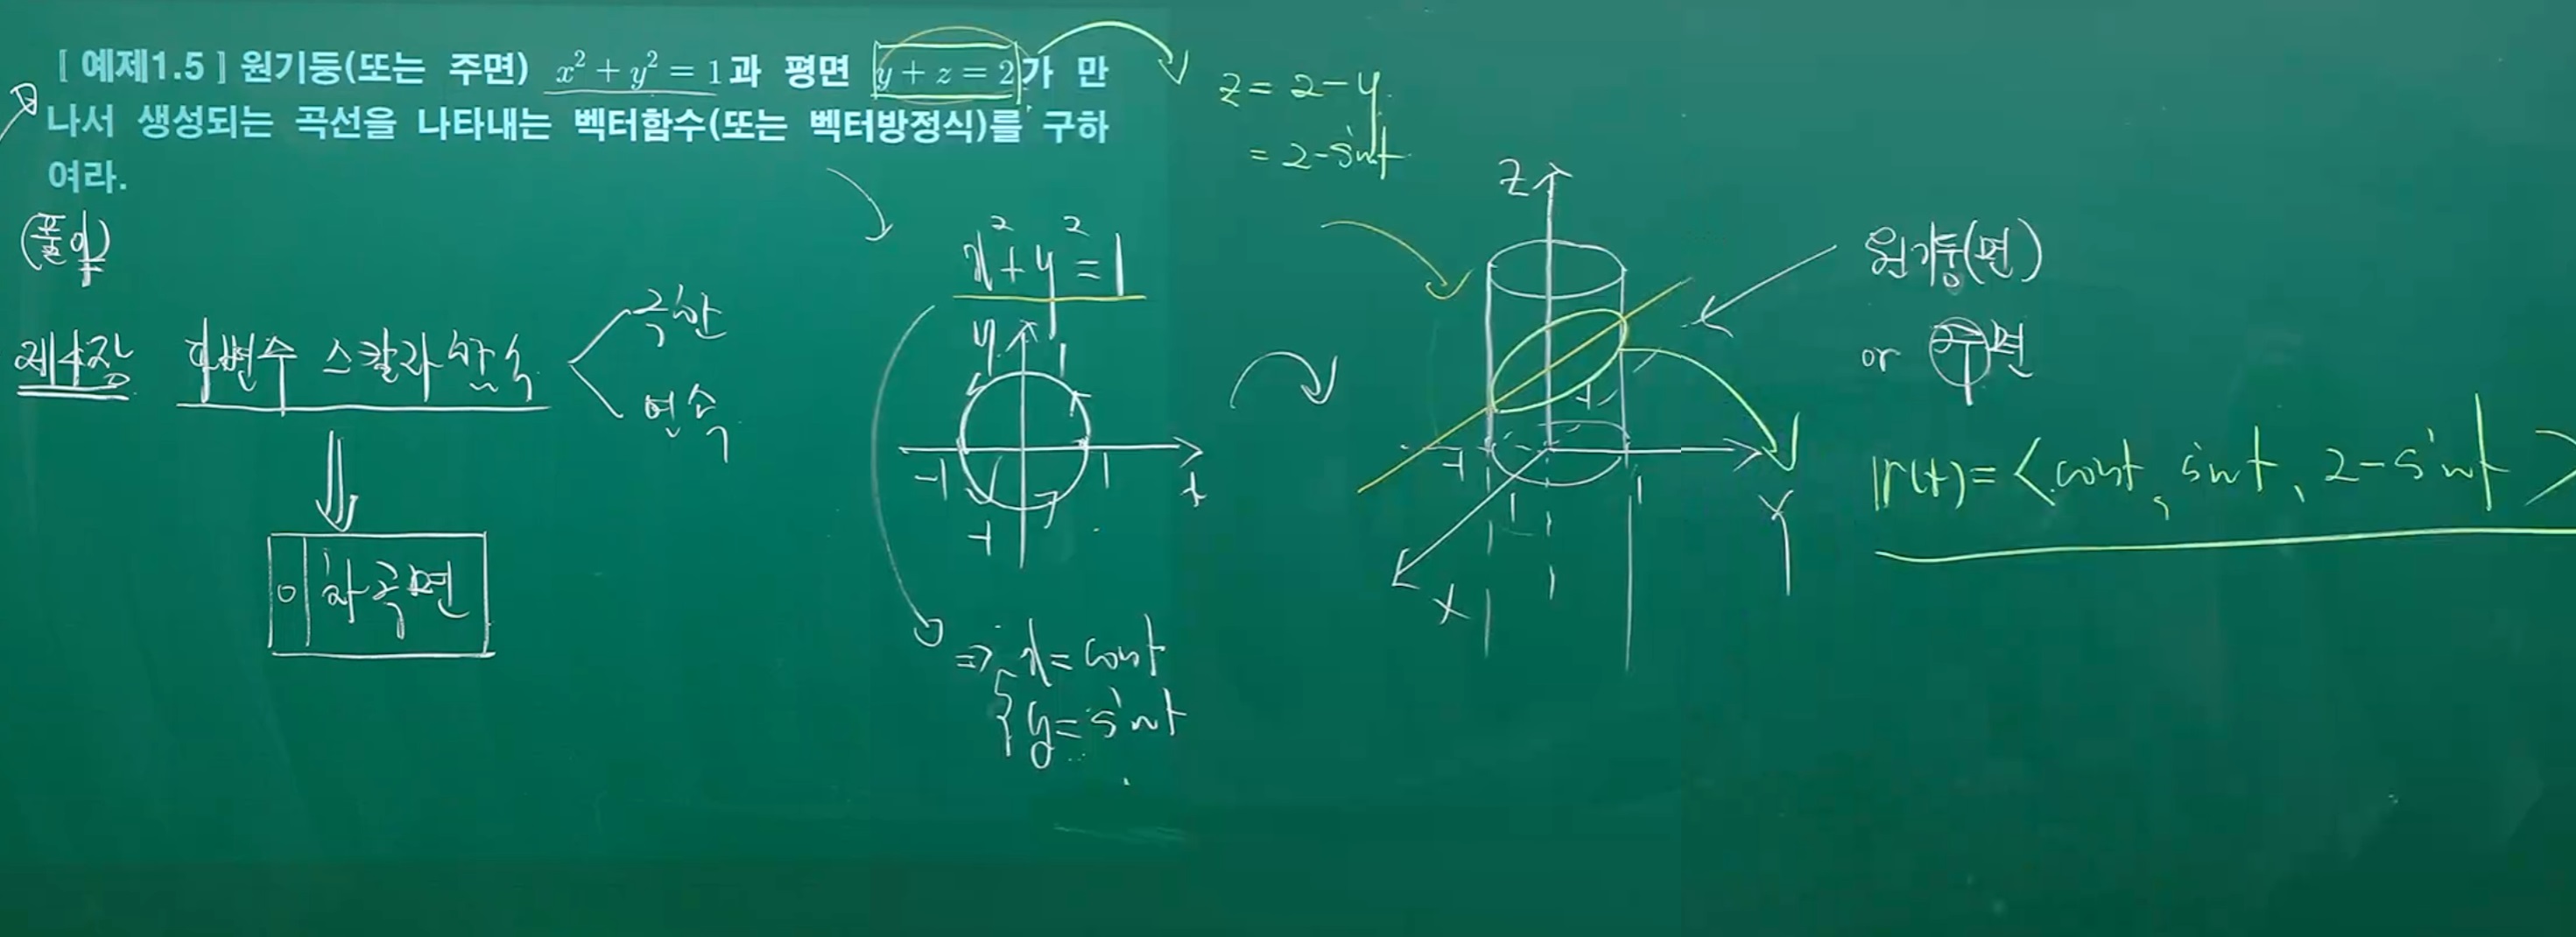 [ 예제1.5 ] 원기둥(또는 주면) x² + y² = 1과 평면 y + z = 2가 만
나서 생성되는 곡선을 나타내는 벡터함수(또는 벡터방정식)를 구하
여라.
(풀이)
제4장 다변수 스칼라 함수
극한
연속
이차곡면
x² + y² = 1
y
1
-1
1
x
-1
⇒ x = cost
y = sint
z = 2-y
= 2-sint
Z
-1
-1
1
1
Y
X
원기둥(면)
or 주면
r(t) = <cost, sint, 2-sint>